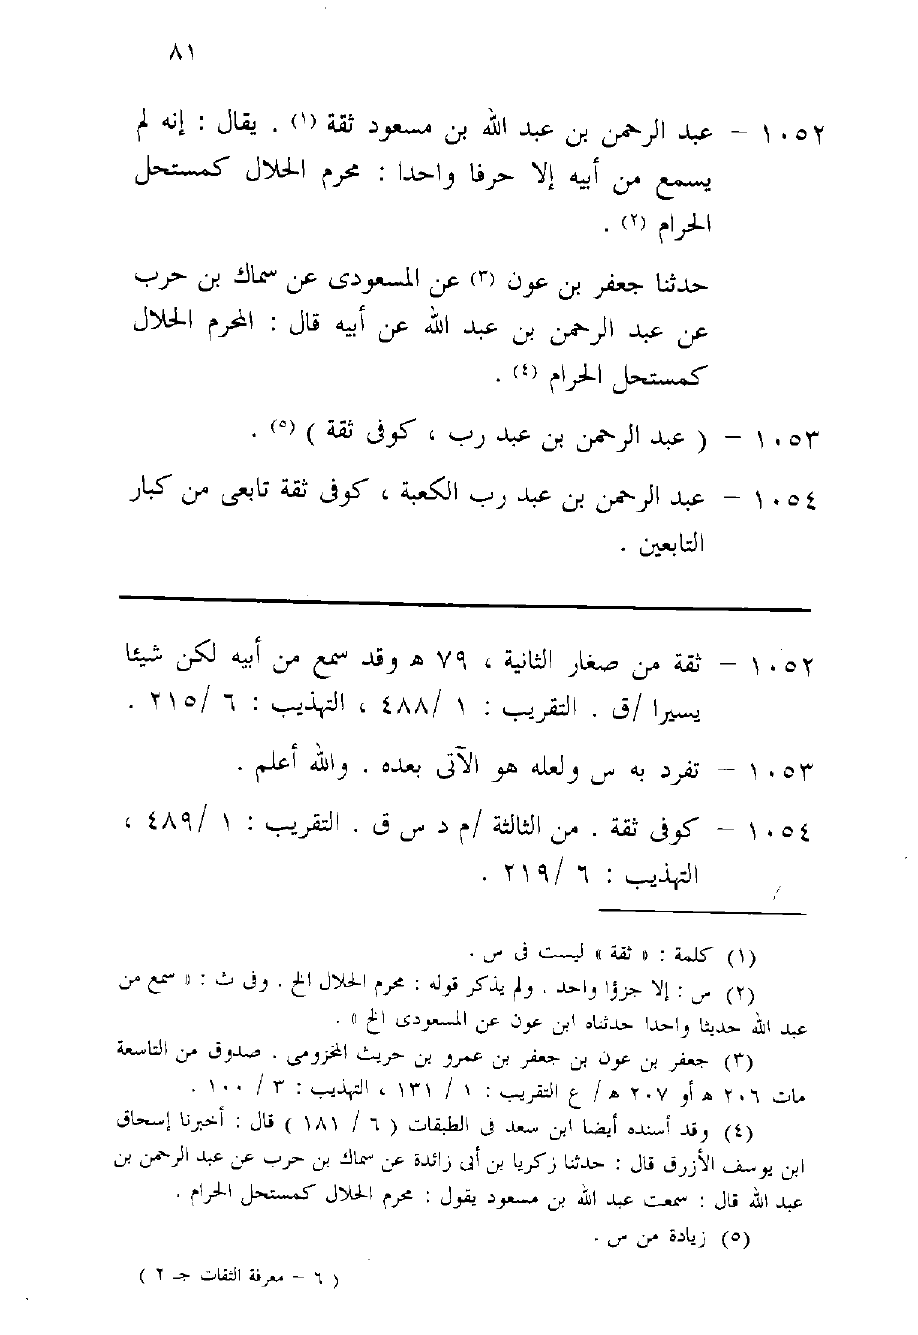 ٨١
١٠٥٢ – عبد الرحمن بن عبد الله بن مسعود ثقة (١) . يقال : إنه لم
يسمع من أبيه إلا حرفا واحدا : محرم الحلال كمستحل
الحرام (٢) .
حدثنا جعفر بن عون (٣) عن المسعودى عن سماك بن حرب
عن عبد الرحمن بن عبد الله عن أبيه قال : المحرم الحلال
كمستحل الحرام (٤) .
١٠٥٣ – ( عبد الرحمن بن عبد رب ، كوفى ثقة ) (٥) .
١٠٥٤ – عبد الرحمن بن عبد رب الكعبة ، كوفى ثقة تابعى من كبار
التابعين .
١٠٥٢ – ثقة من صغار الثانية ، ٧٩ هـ وقد سمع من أبيه لكن شيئا
يسيرا /ق . التقريب : ١ /٤٨٨ ، التهذيب : ٦ /٢١٥ .
١٠٥٣ – تفرد به س ولعله هو الآتى بعده . والله أعلم .
١٠٥٤ – كوفى ثقة . من الثالثة /م د س ق . التقريب : ١ /٤٨٩ ،
التهذيب : ٦ /٢١٩ .
(١) كلمة : « ثقة » ليست فى س .
(٢) س : إلا جزؤا واحد . ولم يذكر قوله : محرم الحلال الخ . وفى ث : « سمع من
عبد الله حديثا واحدا حدثناه ابن عون عن المسعودى الخ » .
(٣) جعفر بن عون بن جعفر بن عمرو بن حريث المخزومى . صدوق من التاسعة
مات ٢٠٦ هـ أو ٢٠٧ هـ / ع التقريب : ١ / ١٣١ ، التهذيب : ٣ / ١٠٠ .
(٤) وقد أسنده أيضا ابن سعد فى الطبقات ( ٦ / ١٨١ ) قال : أخبرنا إسحاق
ابن يوسف الأزرق قال : حدثنا زكريا بن أبى زائدة عن سماك بن حرب عن عبد الرحمن بن
عبد الله قال : سمعت عبد الله بن مسعود يقول : محرم الحلال كمستحل الحرام .
(٥) زيادة من س .
( ٦ – معرفة الثقات جـ ٢ )